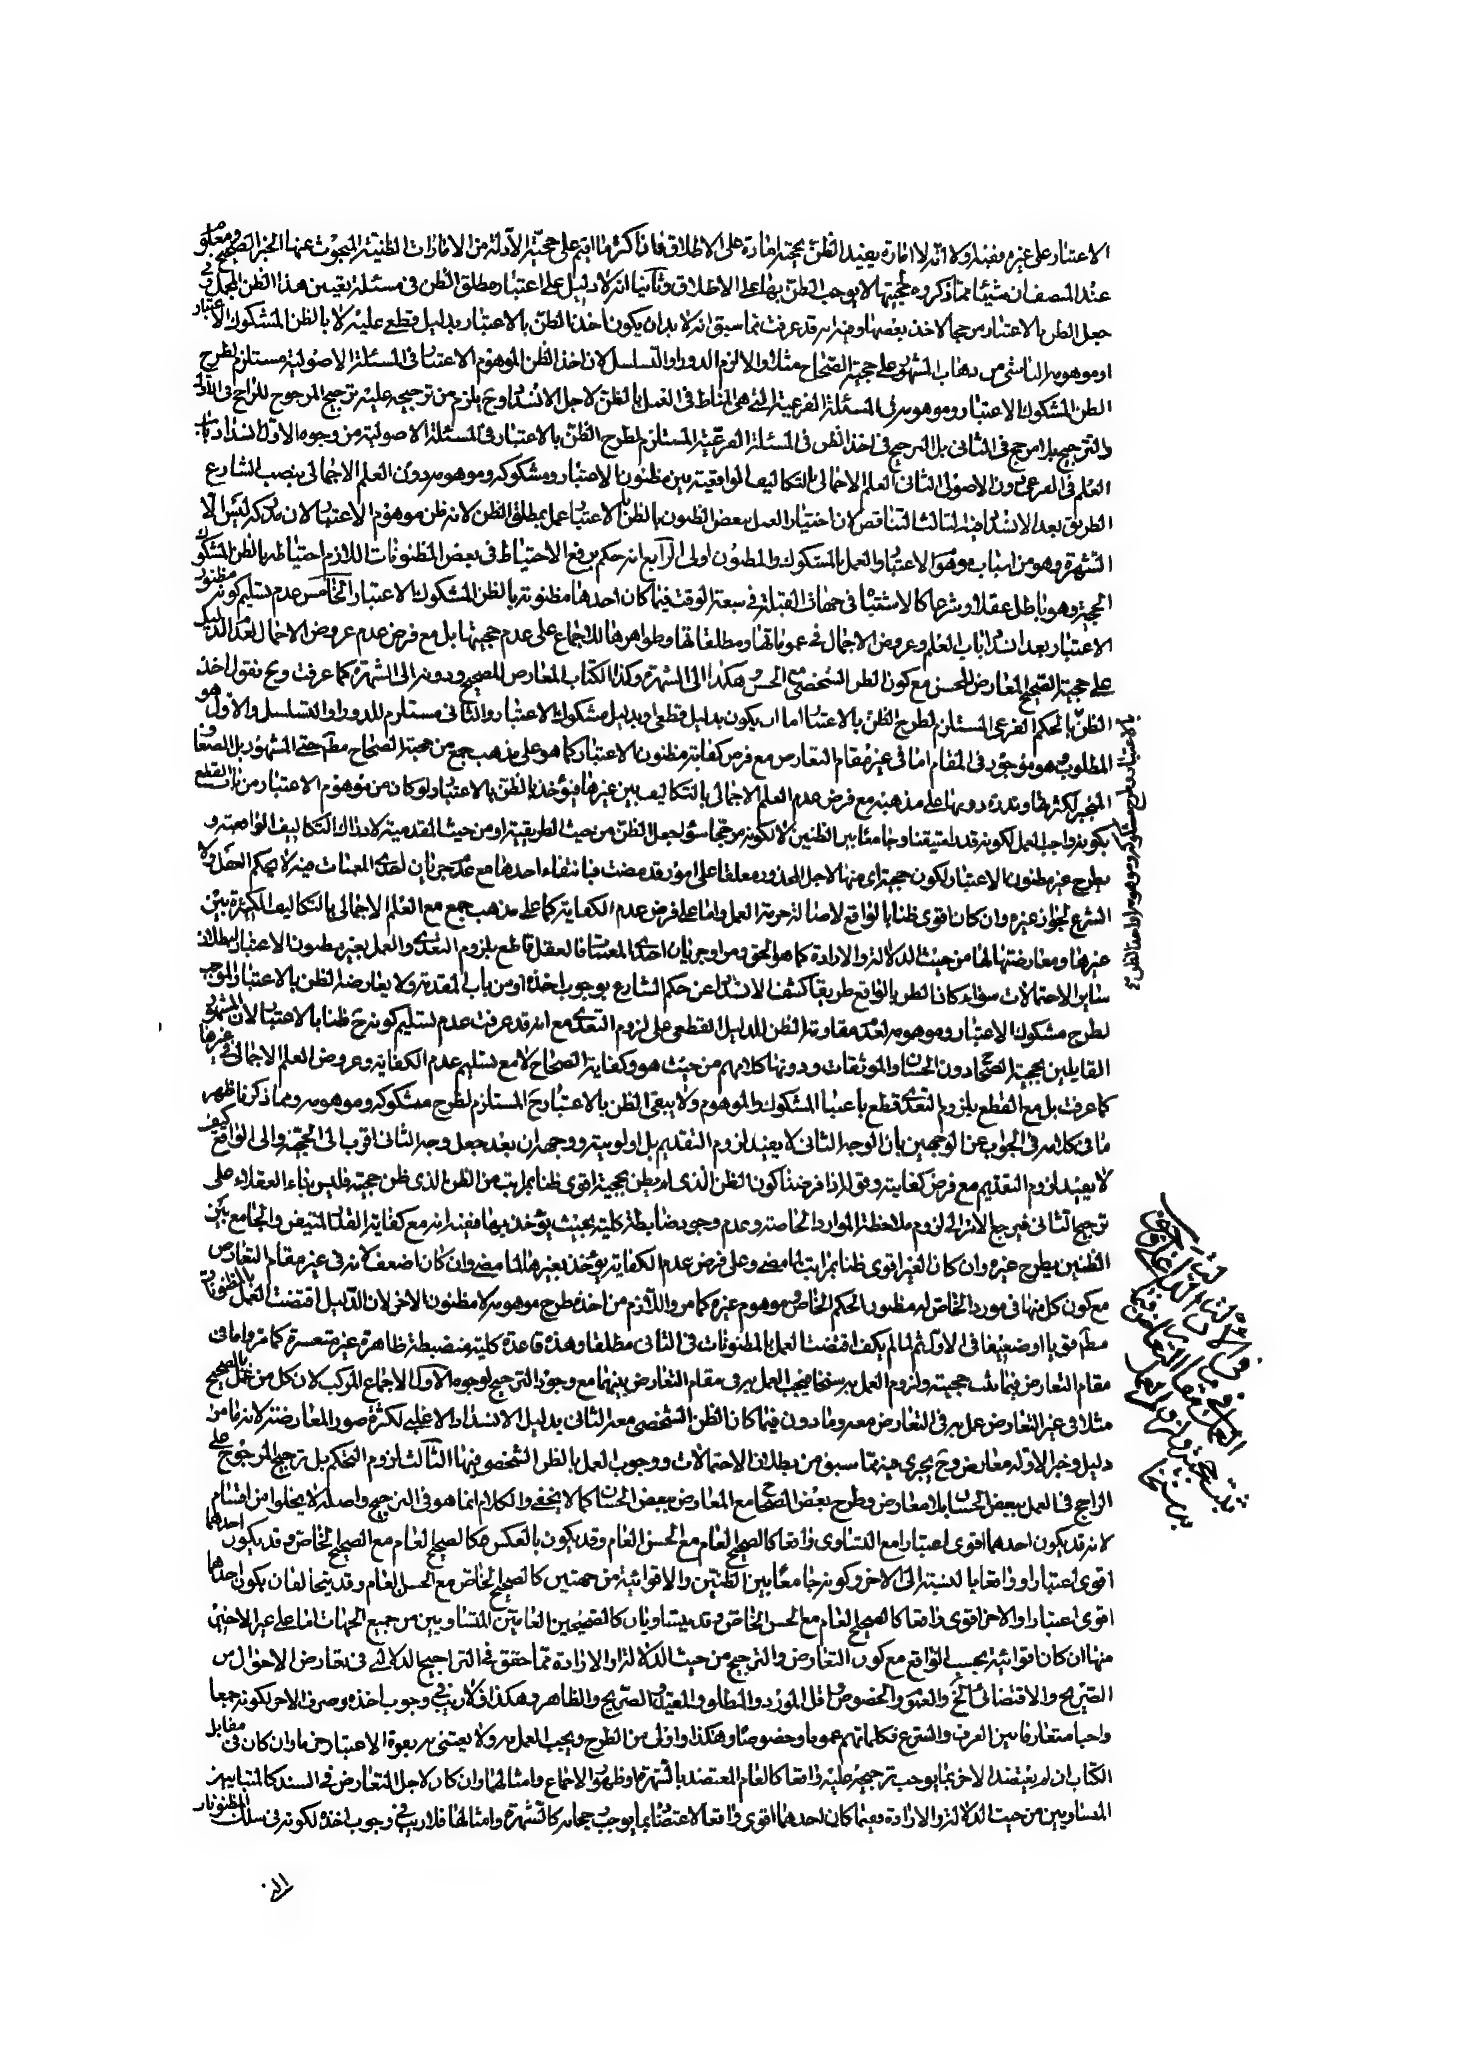 الاعتبار على غيره ففيه اولا انه لا امارة يفيد الظن بحجية امارة على الاطلاق فان اكثر ما اقيم على حجية الادلة من الامارات الظنية المبحوث عنها الخبر الصحيح ومعلوم
عند المنصف ان شيئا مما ذكروه لحجيتها لا يوجب الظن بها على الاطلاق وثانيا انه لا دليل على اعتبار مطلق الظن في مسئلة تعيين هذا الظن المجمل وفي
جعل الظن بالاعتبار مرجحا لاخذ بعضها وفيه انه قد عرفت مما سبق انه لا بد ان يكون اخذ الظن بالاعتبار بدليل قطعي عليه لا بالظن المشكوك الاعتبار
او موهومه الناشي من ذهاب المشهور على حجية الصحاح مثلا والا لزم الدور او التسلسل لان اخذ الظن الموهوم الاعتبار في المسئلة الاصولية مستلزم لطرح
الظن المشكوك الاعتبار وموهومه في المسئلة الفرعية التي هي المناط في العمل بالظن لاجل الانسداد وح يلزم من ترجيحه عليه ترجيح المرجوح للراجح في الاول
والترجيح بلا مرجح في الثاني بل الترجيح في اخذ الظن في المسئلة الفرعية المستلزم لطرح الظن بالاعتبار في المسئلة الاصولية من وجوه الاول انسداد باب
العلم في الفرعي دون الاصولي الثاني العلم الاجمالي بالتكاليف الواقعية بين مظنون الاعتبار ومشكوكه وموهومه دون العلم الاجمالي بنصب الشارع
الطريق بعد الانسداد ايضا الثالث التناقض لان اختيار العمل ببعض الظنون بالظن بالاعتبار عمل بمطلق الظن لانه ظن موهوم الاعتبار لان مدركه ليس الا
الشهرة وهو من اسبابه وهو الاعتبار والعمل بالمشكوك والمظنون اولى الرابع انه حكم برفع الاحتياط في بعض المظنونات اللازم احتياطه بالظن المشكوك
الحجية وهو باطل عقلا وشرعا كالاشتباه في جهات القبلة في سعة الوقت فيما كان احدها مظنونة بالظن المشكوك الاعتبار الخامس عدم تسليم كونه مظنون
الاعتبار بعد انسداد باب العلم وعروض الاجمال في عموماتها ومطلقاتها وظواهرها للاجماع على عدم حجيتها بل مع فرض عدم عروض الاجمال لعدم الدليل
على حجية الصحيح المعارض للحسن مع كون الظن الشخصي مع الحسن وهكذا الى الشهرة وكذا الكتاب المعارض للصحيح ودونه الى الشهرة كما عرفت وح نقول اخذ
الظن بالحكم الفرعي المستلزم لطرح الظن بالاعتبار اما ان يكون بدليل قطعي او بدليل مشكوك الاعتبار والثاني مستلزم للدور او التسلسل والاول هو
المطلوب وهو موجود في المقام اما في غير مقام التعارض مع فرض كفاية مظنون الاعتبار كما هو على مذهب جمع من حجية الصحاح مط حتى المشهور بل الضعاف
المنجبر لكثرتها وندرة دونها على مذهبه مع فرض عدم العلم الاجمالي بالتكاليف بين غيرها فيؤخذ بالظن بالاعتبار لو كان من موهوم الاعتبار من باب القطع
بكونه واجب العمل لكونه قدرا متيقنا وجامعا بين الظنين لا لكونه مرجحا سواء جعل الظن من حيث الطريقية او من حيث المقدمية لادراك التكاليف الواقعية و
يطرح غير مظنون الاعتبار لكون حجية اي منها لاجل المحذور معلقا على امور قد مضت فبانتفاء احدها مع عدم جريان احدى المعينات فيه لا يحكم العقل ولا
الشرع بجواز غيره وان كان اقوى ظنا بالواقع لاصالة حرمة العمل واما على فرض عدم الكفاية كما على مذهب جمع مع العلم الاجمالي بالتكاليف الكثيرة بين
غيرها ومعارضتها لها من حيث الدلالة والارادة كما هو الحق ومر او جريان احدى المعينات فالعقل قاطع بلزوم التعدي والعمل بغير مظنون الاعتبار لبطلان
ساير الاحتمالات سواء كان الظن بالواقع طريقا كشف الانسداد عن حكم الشارع بوجوب اخذه او من باب المقدمة ولا يعارضه الظن بالاعتبار الموجب
لطرح مشكوك الاعتبار وموهومه لعدم مقاومة الظن للدليل القطعي على لزوم التعدي مع انه قد عرفت عدم تسليم كونه ح ظنا بالاعتبار لان المشهور
القايلين بحجية الصحاح دون الحسان والموثقات ودونها كلامهم من حيث هو وكفاية الصحاح لا مع تسليم عدم الكفاية وعروض العلم الاجمالي في غيرها
كما عرفت بل مع القطع بلزوم التعدي قطع باعتبار المشكوك والموهوم ولا يبقى الظن بالاعتبار ح المستلزم لطرح مشكوكه وموهومه ومما ذكرنا ظهر
ما في كلامه في الجواب عن الوجهين بان الوجه الثاني لا يفيد لزوم التقديم بل اولويته ووجهه ان بعد جعل وجه الثاني اقرب الى الحجية والى الواقع كيف
لا يفيد لزوم التقديم مع فرض كفايته وقوله اذا فرضنا كون الظن الذي لم يظن بحجية اقوى ظنا بمراتب من الظن الذي ظن حجيته فليس بناء العقلاء على
ترجيح الثاني فيرجع الامر الى لزوم ملاحظة الموارد الخاصة وعدم وجود ضابطة كلية بحيث يؤخذ بها ففيه انه مع كفاية القدر المتيقن والجامع بين
الظنين يطرح غيره وان كان الغير اقوى ظنا بمراتب لما مضى وعلى فرض عدم الكفاية يؤخذ بغيرها لما مضى وان كان اضعف لانه في غير مقام التعارض
مع كون كل منها في مورد الخاص له مظنون الحكم الخاص وموهوم غيره كما مر واللازم من اخذه طرح موهومه لا مظنون الاخر لان الدليل اقتضت العمل بالمظنونات
مط قويا او ضعيفا في الاول ثم لما لم يكف اقتضت العمل بالمظنونات في الثاني مطلقا وهذه قاعدة كلية منضبطة ظاهرة غير متعسرة كما مر واما في
مقام التعارض فيما ثبت حجيته ولزوم العمل به سنخا فيجب العمل به في مقام التعارض بينهما مع وجود الترجيح لوجوه الاول الاجماع المركب لان كل من عمل بالصحيح
مثلا في غير التعارض عمل به في التعارض معه وما دون فيما كان الظن الشخصي معه الثاني بدليل الانسداد الاغلبي لكثرة صور المعارضة لانه ما من
دليل وخبر الا وله معارض وح يجري فيه ما سبق من بطلان الاحتمالات ووجوب العمل بالظن الشخصي فيها الثالث لزوم التحكم بل ترجيح المرجوح على
الراجح في العمل ببعض الحسان بلا معارض وطرح بعض الصحاح مع المعارض ببعض الحسان كما لا يخفى والكلام انما هو في الترجيح واصله لا يخلو من اقسام
لانه قد يكون احدهما اقوى اعتبارا مع التساوي واقعا كالصحيح العام مع الحسن العام وقد يكون بالعكس كالصحيح العام مع الصحيح الخاص وقد يكون احدهما
اقوى اعتبارا وواقعا بالنسبة الى الاخر وكونه جامعا بين الظنين والاقوائية من جهتين كالصحيح الخاص مع الحسن العام وقد يتخالفان بكون احدها
اقوى اعتبارا والاخر اقوى واقعا كالصحيح العام مع الحسن الخاص وقد يتساويان كالصحيحين العامين المتساويين من جميع الجهات اما على غير الاخير
منها ان كان اقوائية بحسب الواقع مع كون التعارض والترجيح من حيث الدلالة او الارادة مما حقق في التراجيح الدلالتي في تعارض الاحوال من
الصريح والاقتضائي والعموم والخصوص واقل المورد والمطلق والمقيد والصريح والظاهر وهكذا فلا ريب في وجوب اخذه وصرف الاخر لكونه جمعا
واحيا متعارفا بين العرف والشرع فكلماتهم عموما وخصوصا وهكذا واولى من الطرح ويجب العمل به ولا يعتنى به بقوة الاعتبار وان كان في مقابل
الكتاب ان لم يعتضد الاخر بما يوجب ترجيحه عليه واقعا كالعام المعتضد بالشهرة وظهور الاجماع وامثالها وان كان لاجل التعارض في السند كالمتباينين
المتساويين من حيث الدلالة والارادة وفيما كان احدهما اقوى واقعا لاعتضاده بما يوجب رجحانه كالشهرة وامثالها فلا ريب في وجوب اخذه لكونه في سلك المظنونات